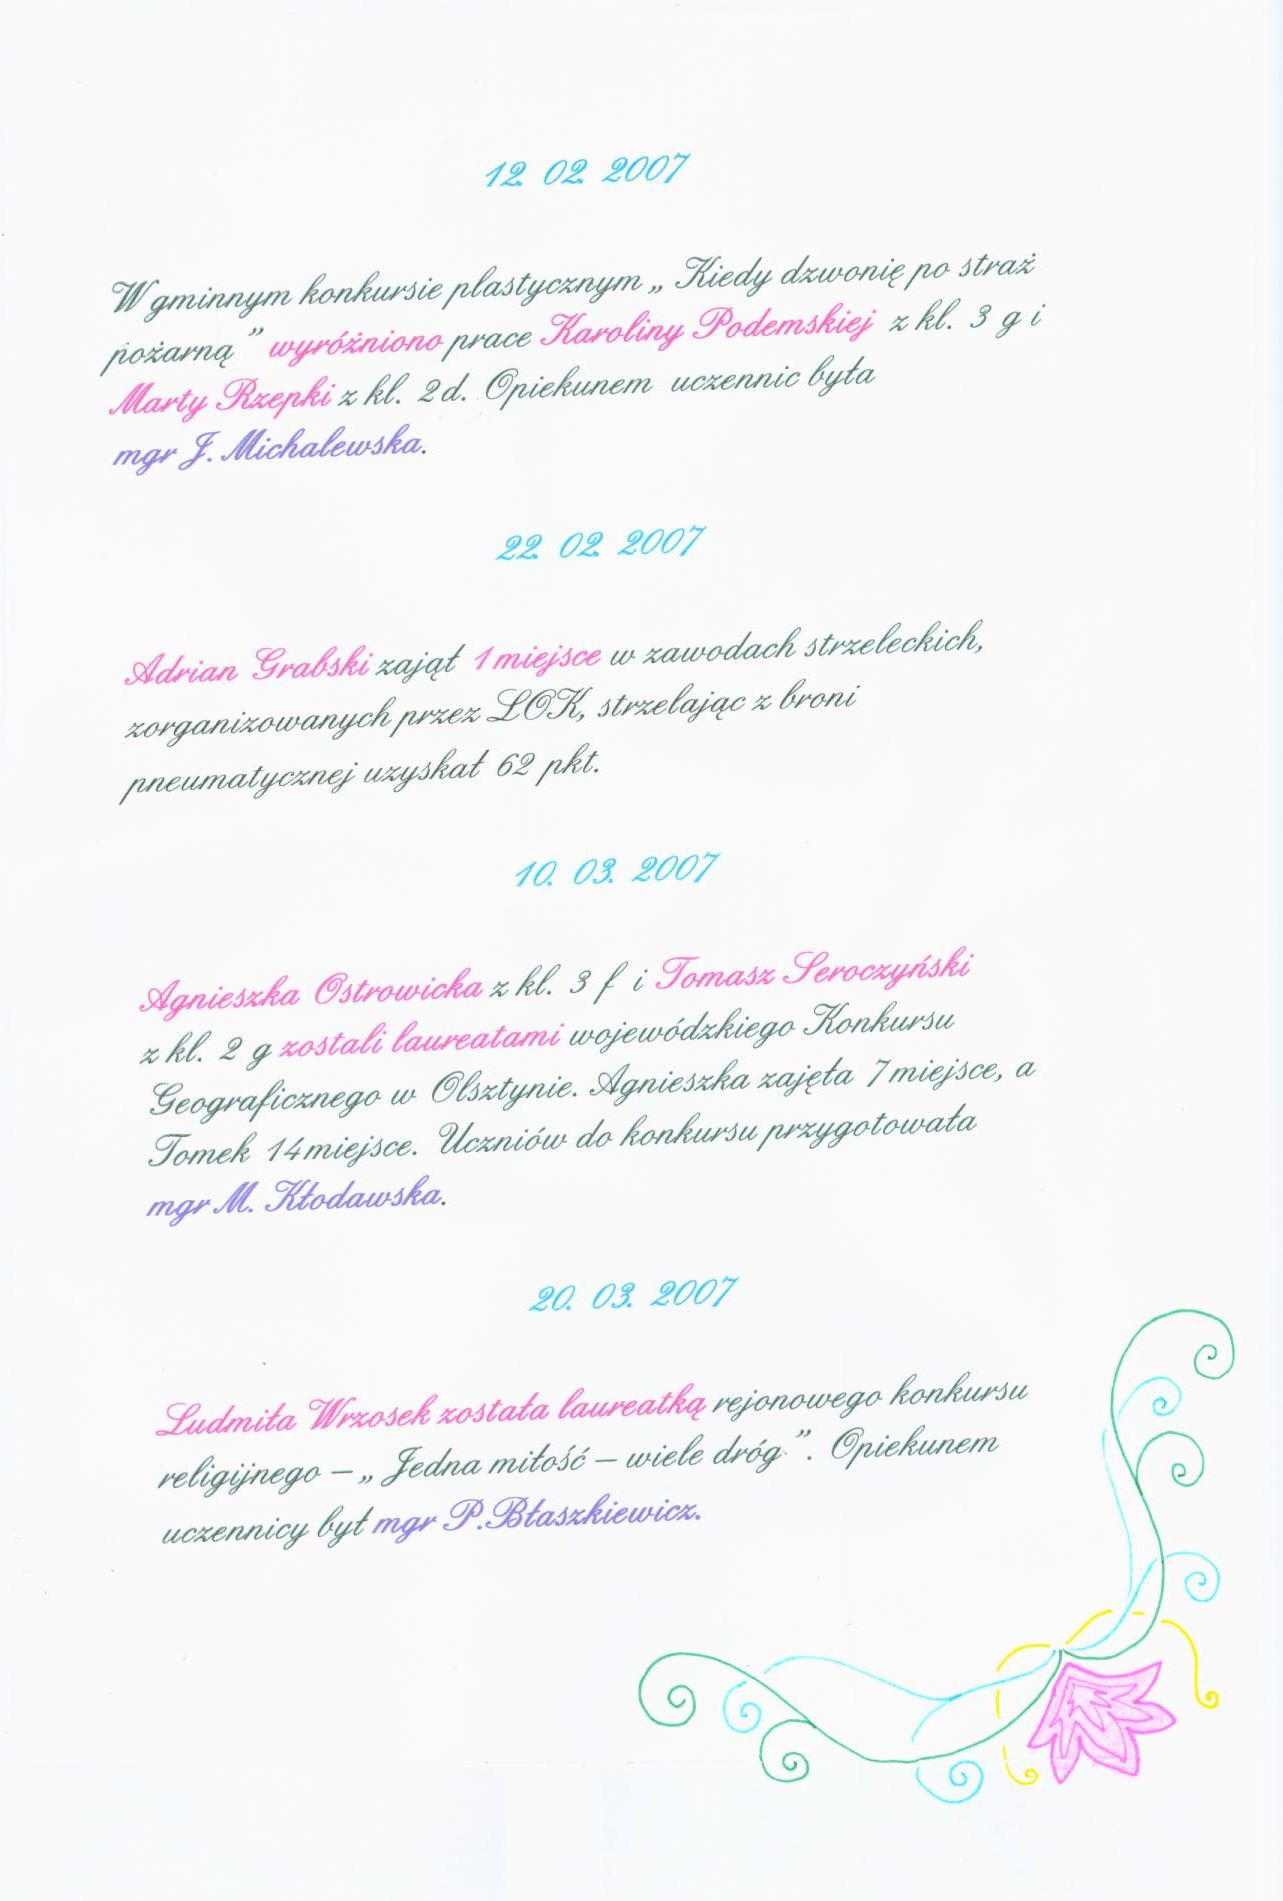 12. 02. 2007
W gminnym konkursie plastycznym „Kiedy dzwonię po straż
pożarną” wyróżniono prace Karoliny Podemskiej z kl. 3 g i
Marty Rzepki z kl. 2d. Opiekunem uczennic była
mgr J. Michalewska.
22. 02. 2007
Adrian Grabski zajął 1 miejsce w zawodach strzeleckich,
zorganizowanych przez LOK, strzelając z broni
pneumatycznej uzyskał 62 pkt.
10. 03. 2007
Agnieszka Ostrowicka z kl. 3 f i Tomasz Seroczyński
z kl. 2 g zostali laureatami wojewódzkiego Konkursu
Geograficznego w Olsztynie. Agnieszka zajęła 7 miejsce, a
Tomek 14 miejsce. Uczniów do konkursu przygotowała
mgr M. Kłodawska.
20. 03. 2007
Ludmiła Wrzosek została laureatką rejonowego konkursu
religijnego – „Jedna miłość – wiele dróg”. Opiekunem
uczennicy był mgr P. Błaszkiewicz.